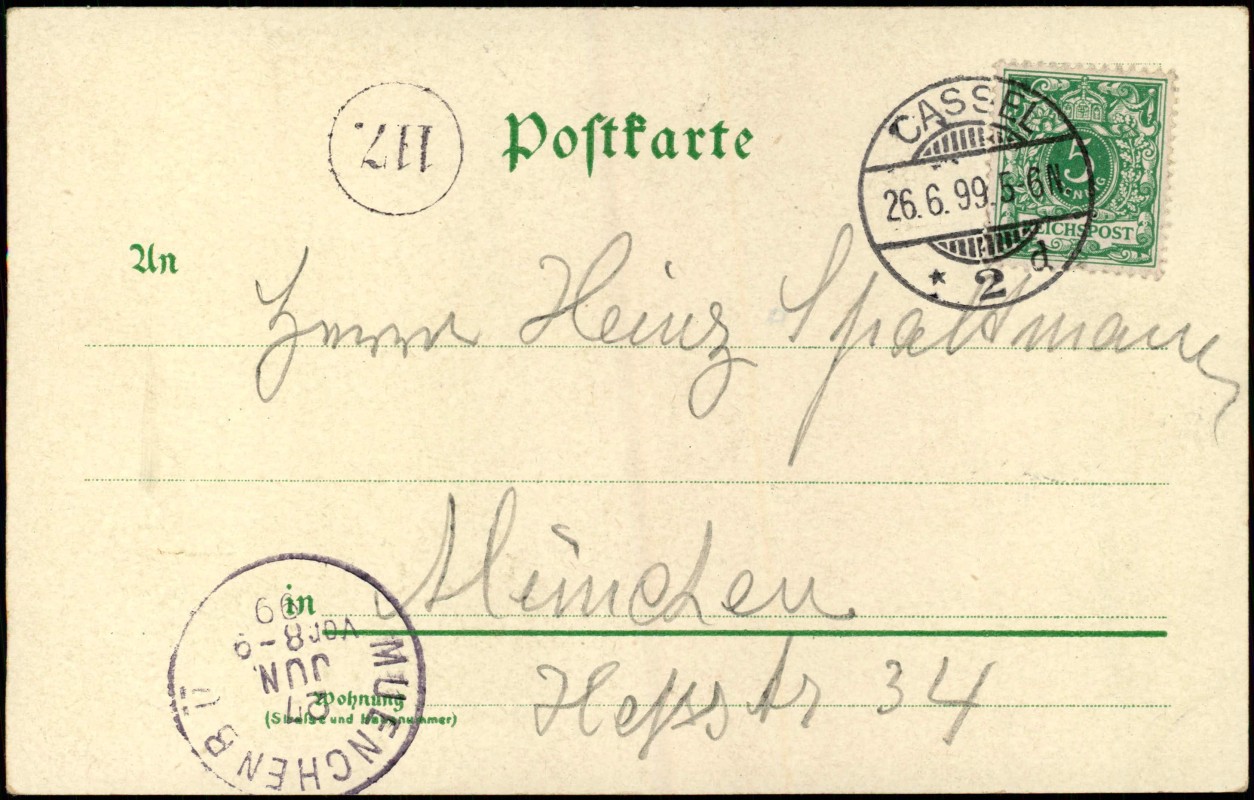 Postkarte
117.
CASSEL
26.6.99. 5-6N
* 2 d
5
PFENNIG
REICHSPOST
An
Herrn Heinz Spaltmann
in München
Wohnung
(Straße und Hausnummer)
Hessstr 34
MUENCHEN B Ü
27
JUN
Vor 8-9
99